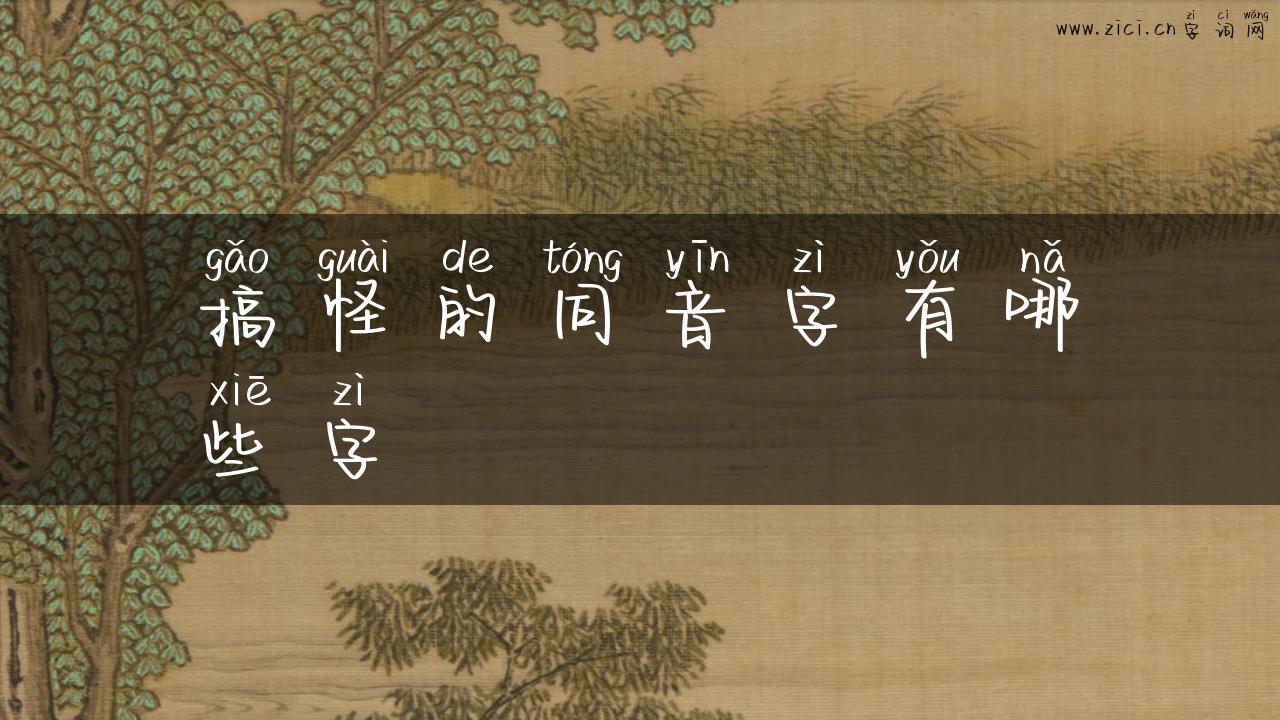 zì cí wǎng
www.zici.cn字词网
gǎo guài de tóng yīn zì yǒu nǎ
搞怪的同音字有哪
xiē zì
些字